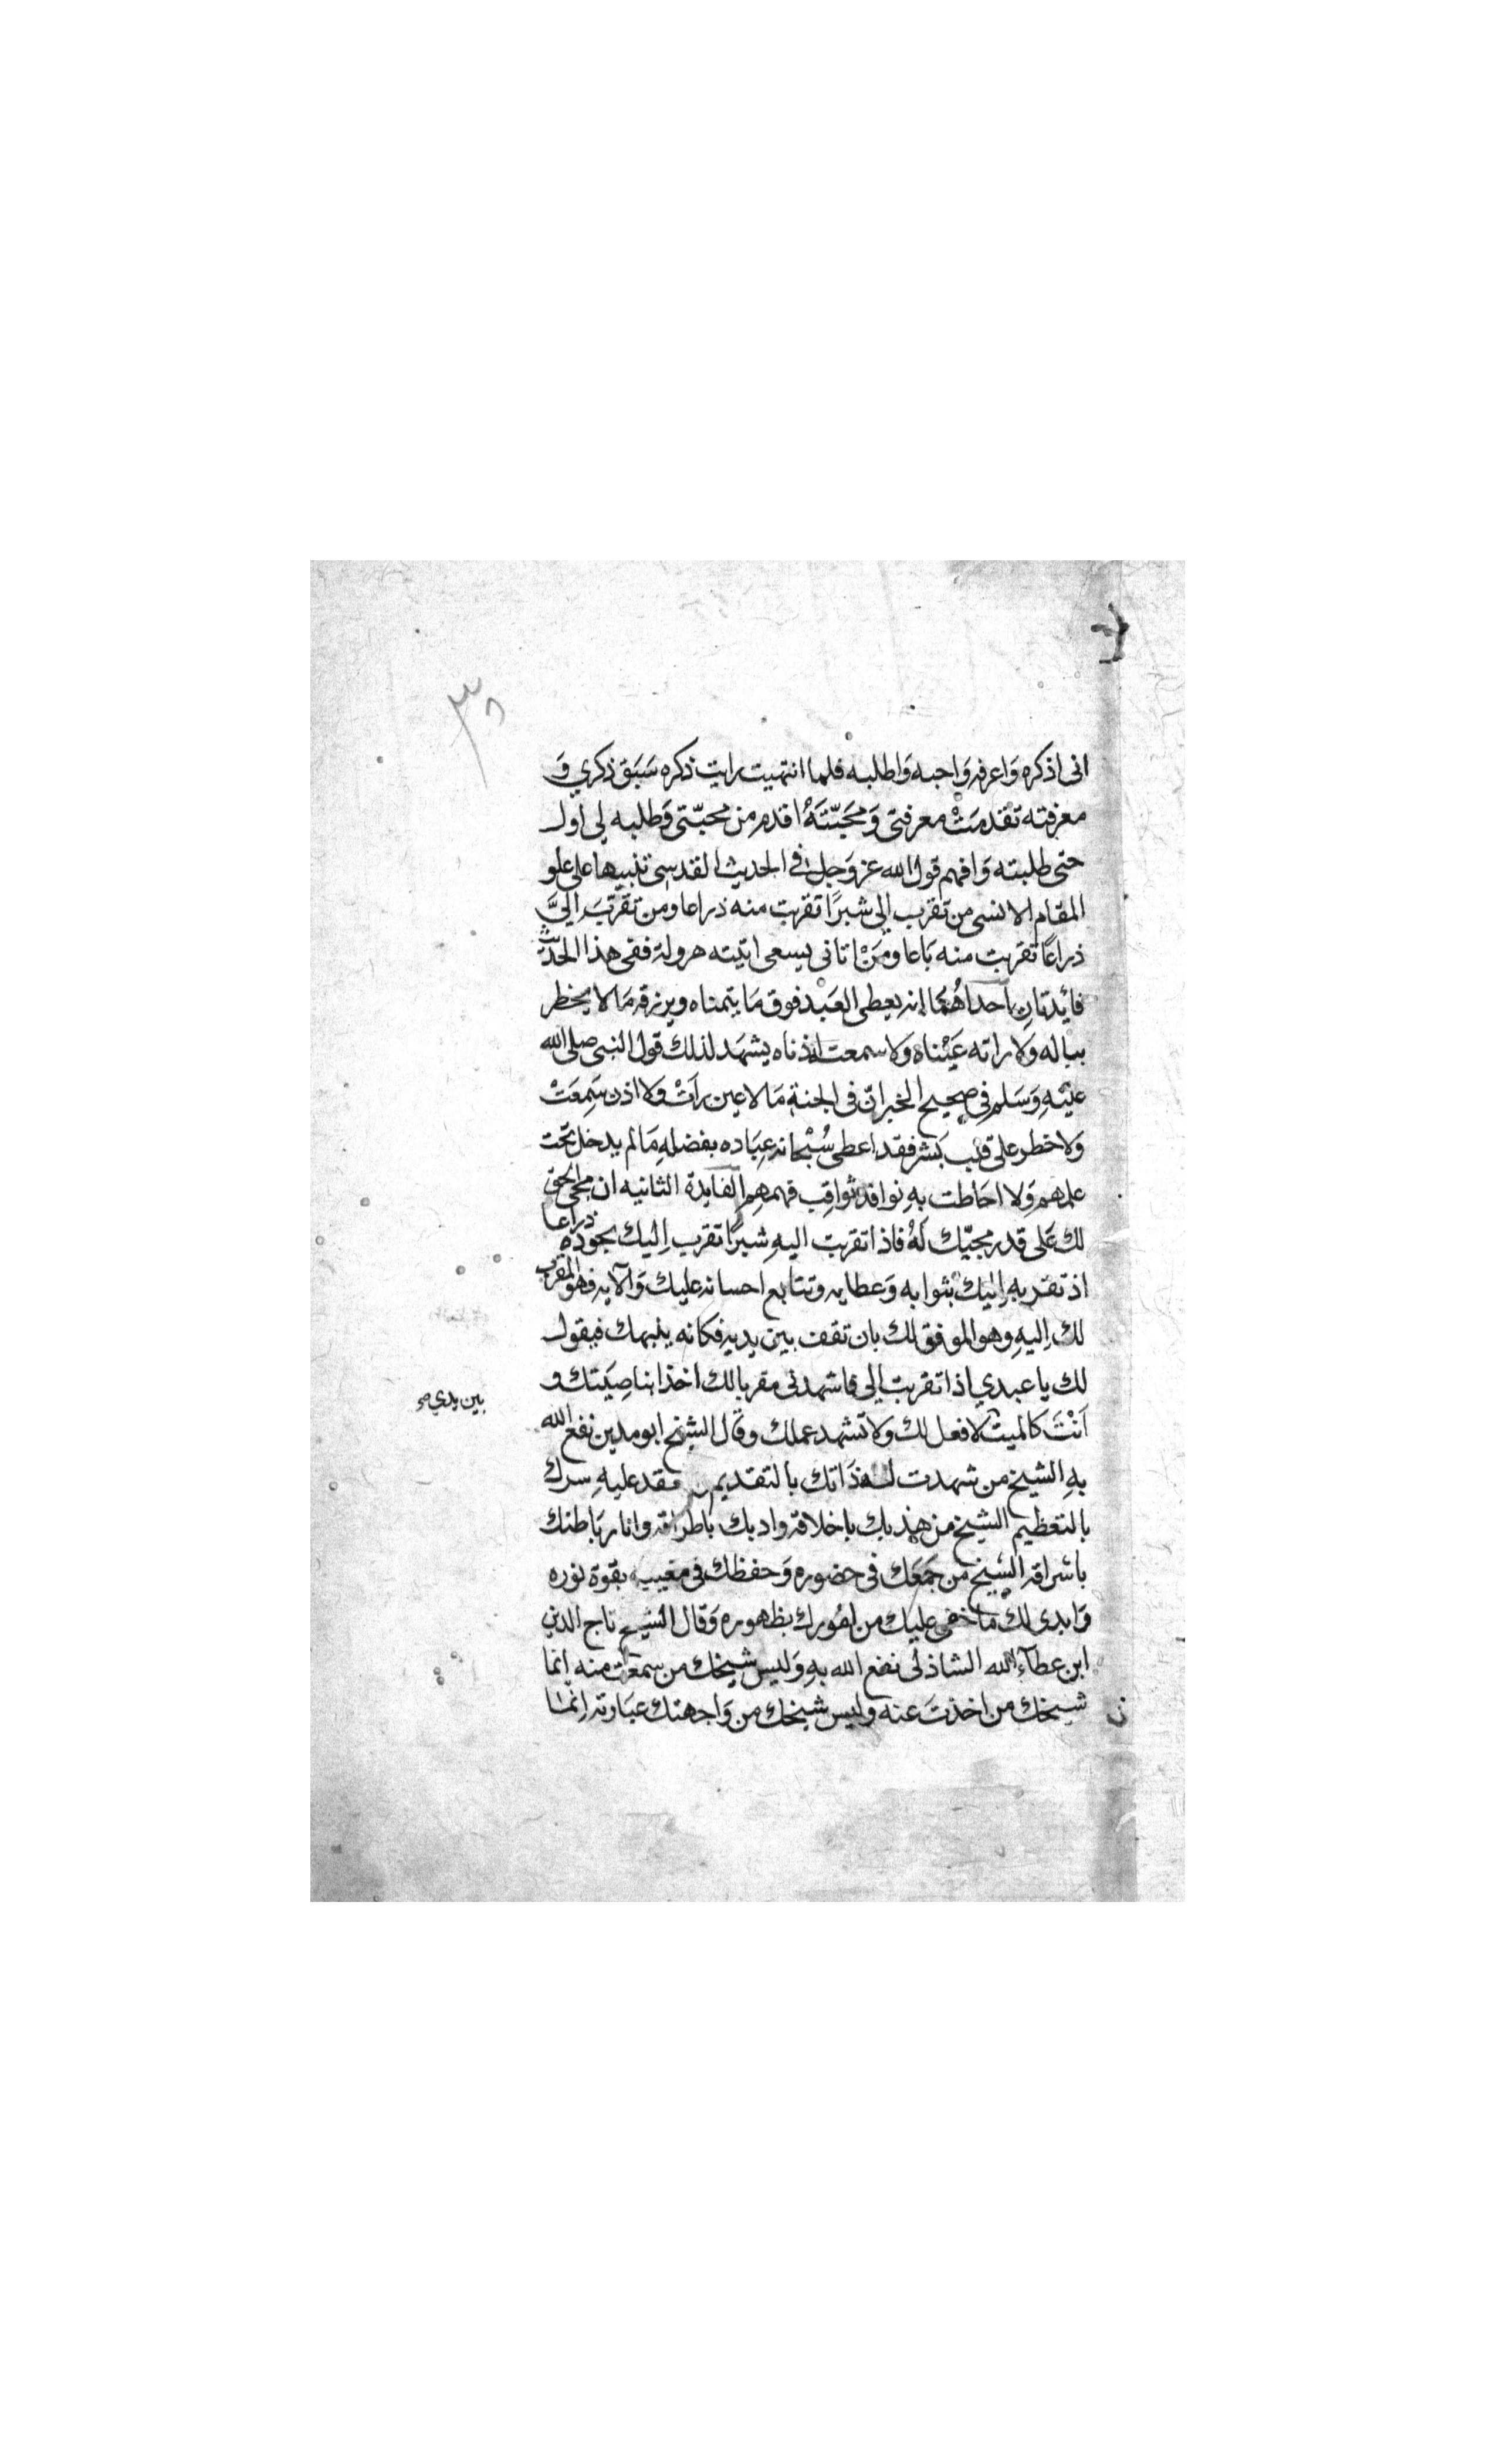 ٣٨
انى اذكره وَاعرفه وَاحبه وَاطلبه فلما انتهيت رايت ذكره سَبَق ذكري وَ
معرفته تقدمَتْ معرفتى وَمحَبّتَهُ اقدم من محبّتى وَطلبه لى اول
حتى طلبته وَافهم قول الله عز وَجل فى الحديث القدسى تنبيها على علو
المقام الانسى من تقرب الى شبرًا تقربت منه ذراعا ومن تقرّبَ الىَّ
ذراعًا تقربت منه بَاعا ومَنْ اتانى يسعى اتيته هرولة ففى هذا الحديث
فائِدتانِ احداهُمَا انه يعطى العَبد فوق مَا يتمناه ويرزقه مَالا يخطر
بباله وَلا راته عَيْناه وَلا سمعت اذناه يشهَد لذلك قول النبى صلى الله
عليْهِ وَسَلم فى صحيح الخبر انّ فى الجنة مَالا عين رأتْ وَلا اذن سَمِعَتْ
وَلا خطر على قلب بَشر فقد اعطى سُبْحانه عِبَاده بفضلهِ مَالم يدخل تحت
علمهم وَلا احَاطت بهِ نوافذ ثواقِب فهمهِم الفايدة الثانيه ان مجى الحق
لك عَلى قدر مجيّك لَهُ فاذا تقربت اليهِ شبرًا تقرب اِليك بجوده ذراعا
اذ تقربه اِليك بثوابه وَعطايه وتتابع احسانه عليك وَآلايه فهو المقرب
لك اِليهِ وهو الموفق لك بان تقف بين يديه فكانه ينبهك فيقول
لك يا عبدي اذا تقربت الى فاشهدنى مقربا لك اخذا بناصِيَتك و
بين يدي صح
اَنْتَ كالميت لا فعل لك ولا تشهد عملك وقال الشيخ ابو مدين نفع الله
بهِ الشيخ من شهدت له ذَاتك بالتقديم فقد عليهِ سرك
بالتعظيم الشيخ من هذبك باخلاقه وادبك باطراقه وانار بَاطنك
باشراقه الشيخ من جَمَعَك فى حضوره وَحفظك فى مغيبه بقوة نوره
وَابدى لك مَا خفى عليك من امُورك بظهوره وَقال الشيخ تاج الدين
ابن عطآء الله الشاذلى نفع الله بهِ وَليس شيخك من سمعت منه انما
شيخك من اخذتَ عنه وليس شيخك من وَاجهتك عبَارته اِنمّا